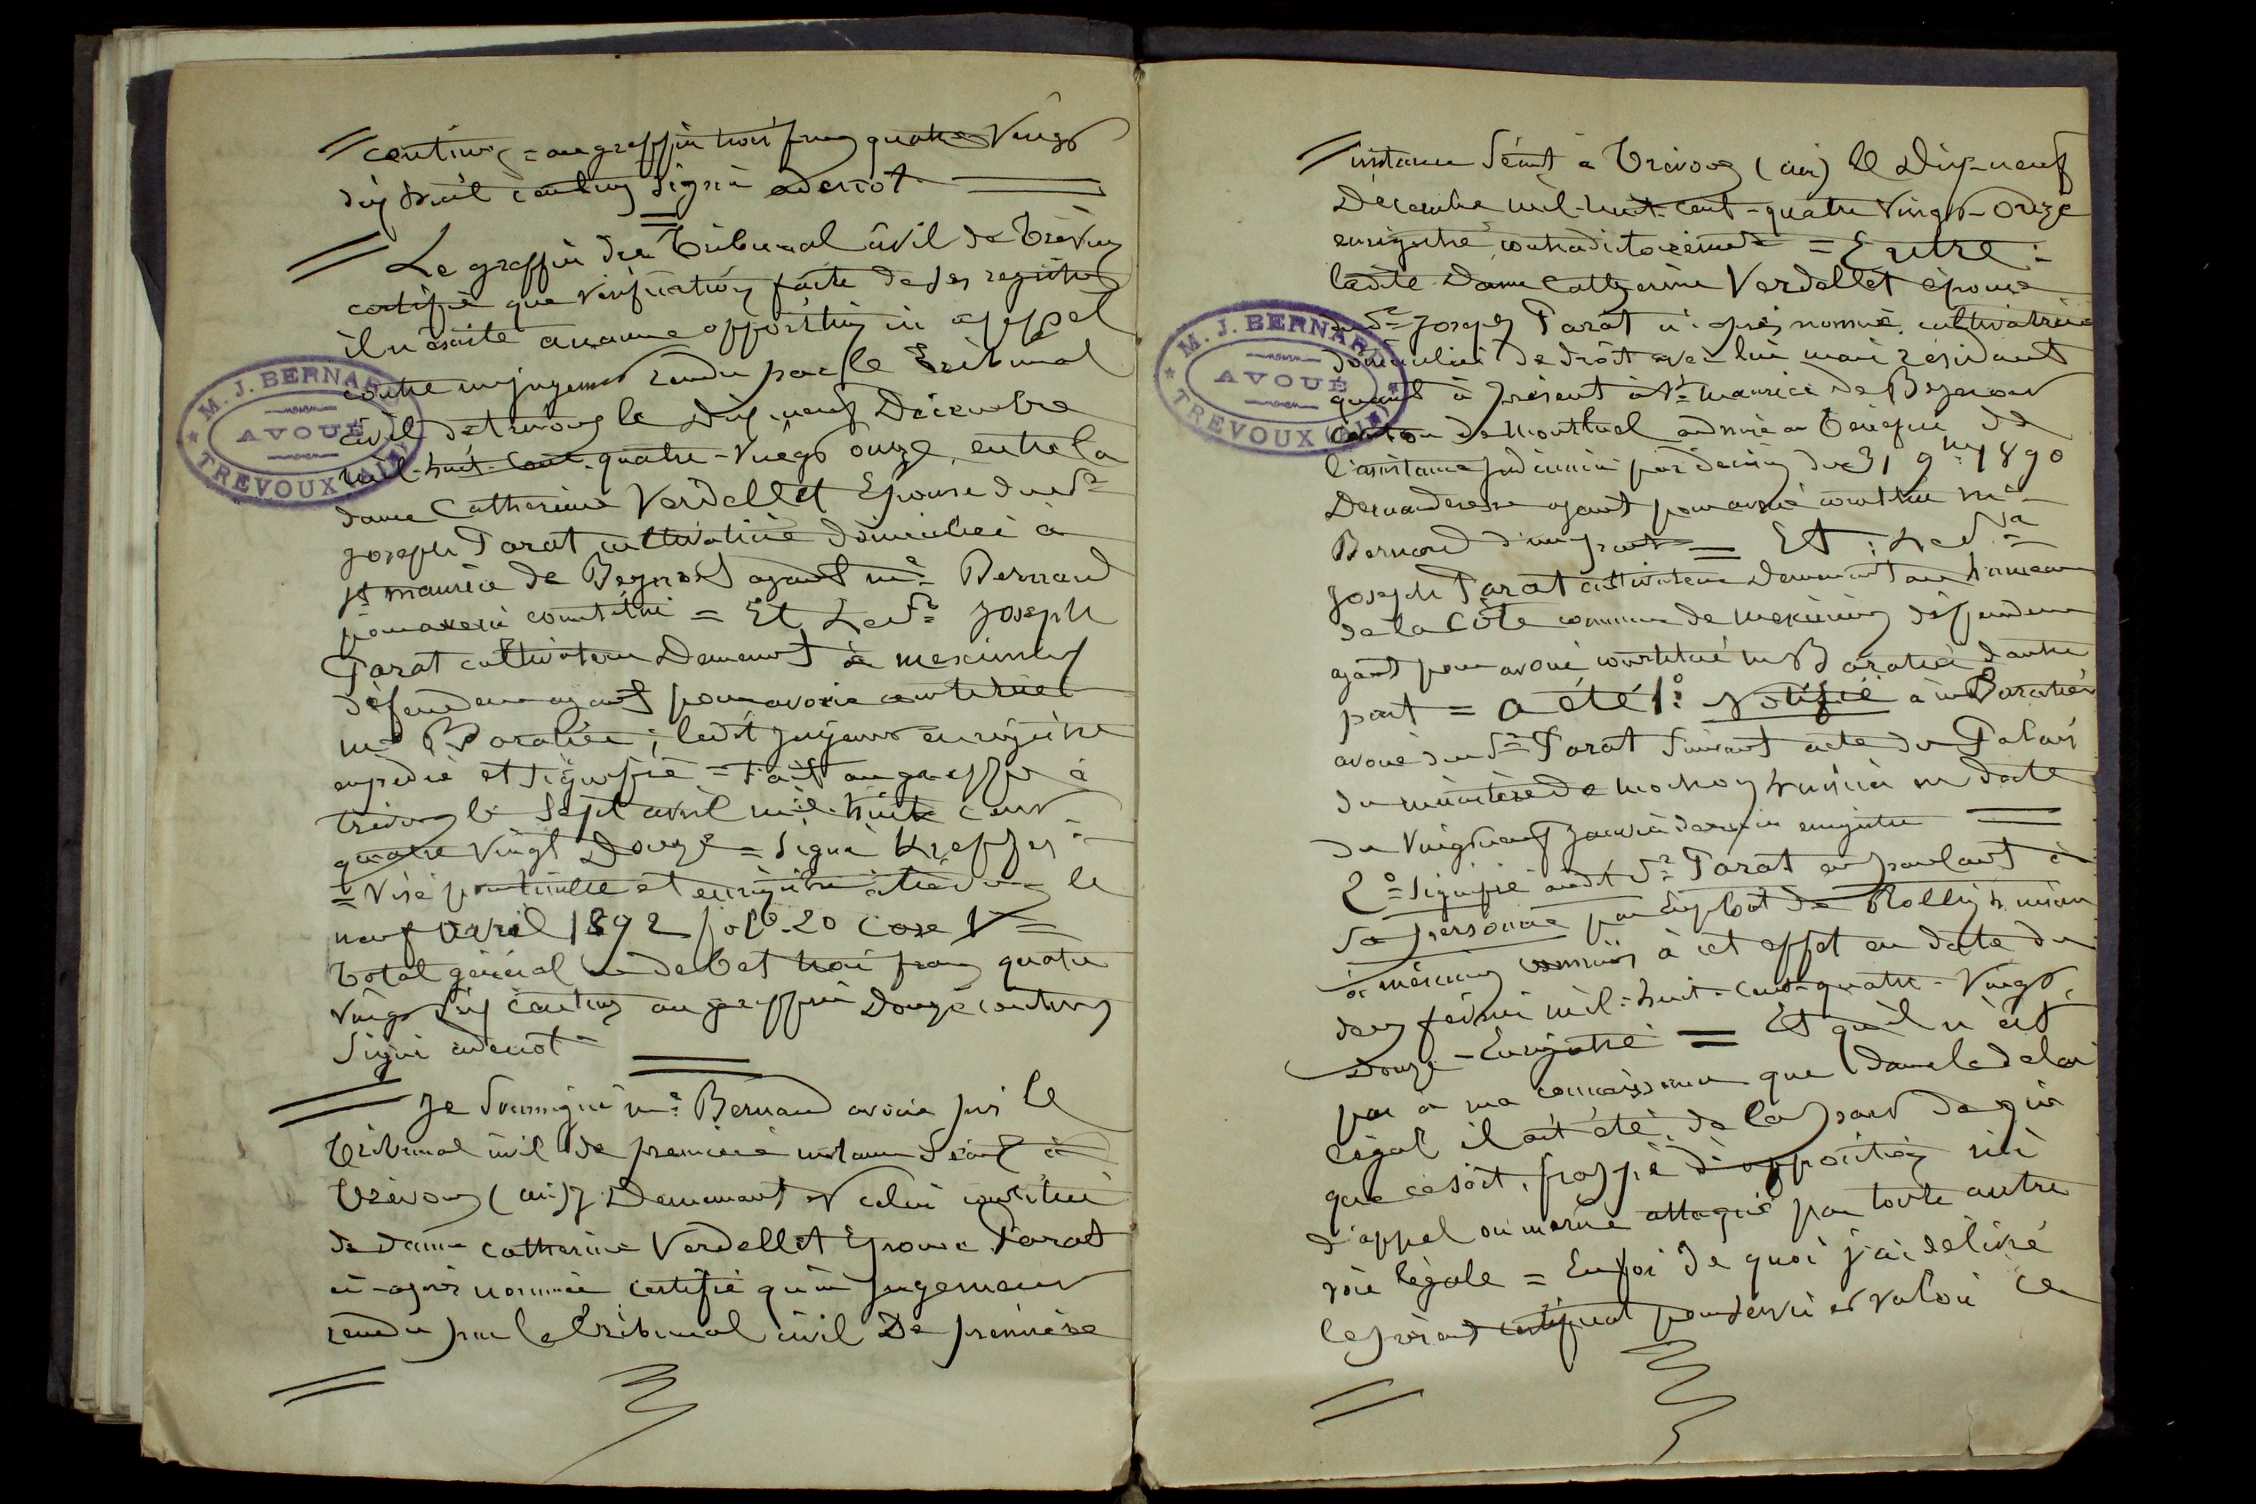 centimes = au greffier trois francs quatre Vingt
dix huit centimes signé aderiot
Le greffier du Tribunal civil de Trévoux
certifie que vérification faite de ses registres
il n'existe aucune opposition ni appel
contre un jugement rendu par le Tribunal
civil de trévoux le Dix neuf Décembre
mil-huit-cent-quatre-vingt onze, entre la
dame Catherine Verdellet Epouse du Sr
Joseph Parat cultivatrice domiciliée à
St maurice de Beynost ayant me Bernard
pour avoué constitué = Et Le Sr Joseph
Parat cultivateur Demeurant à meximieux
défendeur ayant pour avoué constitué
me Baratier; ledit jugement enregistré
expédié et signifié = Fait au greffe à
trévoux le sept avril mil-huit cent
quatre vingt Douze = signé
= Visé pour timbre et enregistré à trévoux le
neuf avril 1892 fo 20 Case V =
Total général en debet trois francs quatre
vingt dix centimes au greffier Douze centimes
signé aderiot
Je soussigné me Bernard avoué près le
Tribunal civil de première instance séant à
Trévoux (ain) y Demeurant et celui constitué
de dame catherine Verdellet Epouse Parat
ci-après nommée certifie qu'un jugement
rendu par le Tribunal civil De première
M. J. BERNARD
AVOUÉ
TREVOUX (AIN)
instance séant à Trévoux (ain) le Dix-neuf
Décembre mil-huit-cent-quatre vingt-onze
enregistré contradictoirement = Entre :
ladite Dame Catherine Verdellet épouse
du Sr Joseph Parat ci-après nommé cultivatrice
domiciliée de droit avec lui mais résidant
quant à présent à St maurice de Beynost
Canton de Montluel admise au Bénéfice de
l'assistance judiciaire par décision du 31 9bre 1890
Demanderesse ayant pour avoué constitué me
Bernard d'une part = Et : Le Sr
Joseph Parat cultivateur Demeurant au hameau
de la Côte commune de meximieux défendeur
ayant pour avoué constitué me Baratier d'autre
part = a été 1o Notifié à me Baratier
avoué du Sr Parat suivant acte du Palais
du ministère de huissier en date
du Vingt neuf Janvier dernier enregistré
2o signifié audit Sr Parat en parlant à
sa personne par Exploit de Rollin huissier
à meximieux commis à cet effet en date du
deux février mil-huit-cent-quatre-vingt,
Douze-Enregistré = Et qu'il n'est
pas à ma connaissance que dans le délai
légal il ait été, de la part de qui
que ce soit, frappé d'opposition ni
d'appel ou même attaqué par toute autre
voie légale = En foi de quoi j'ai délivré
le présent certificat pour servir et valoir ce
M. J. BERNARD
AVOUÉ
TREVOUX (AIN)